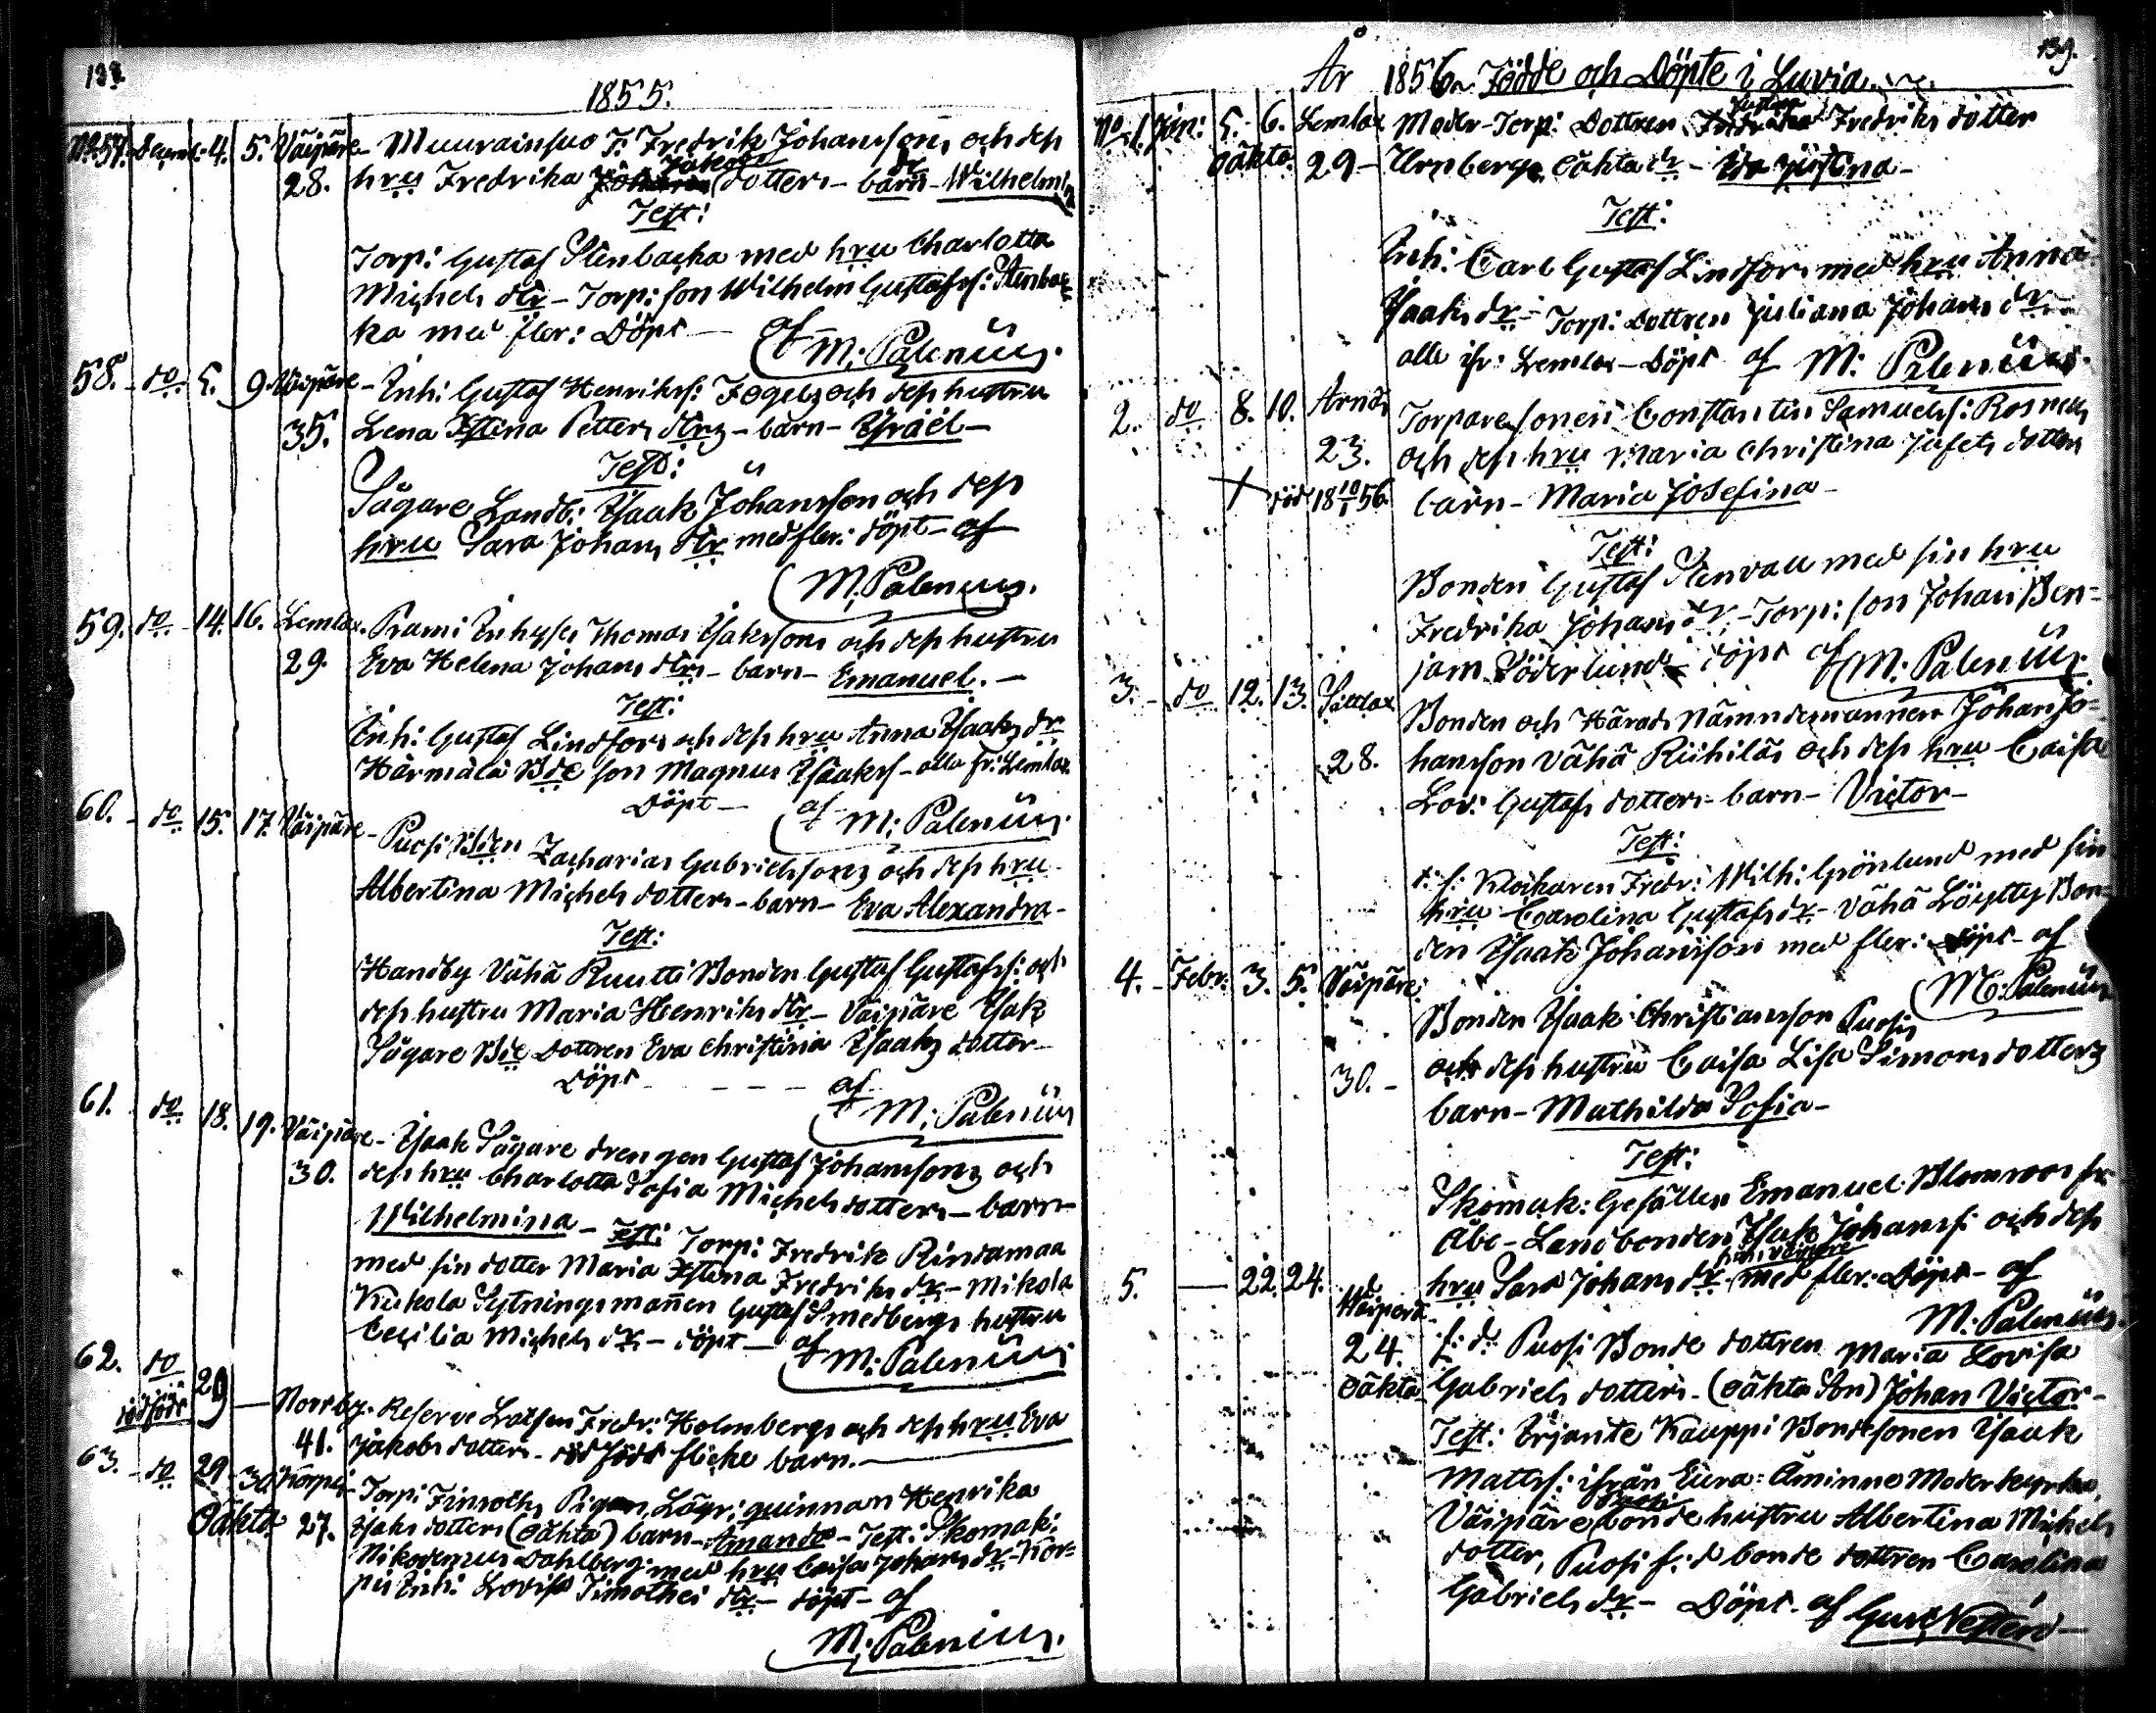 138.
1855.
No 57. Decemb: 4. 5. Väipäre - Muurainsuo T: Fredrik Johanssons och dess
28. hru Fredrika Jakobs dotters - barn - Wilhelmina
Test:
Torp: Gustaf Stenbacka med hru Charlotta
Michels dtr - Torp: son Wilhelm Gustafss: Stenbac
ka med fler: Döpt - af M: Palenius.
58. do 5. 9. Väipäre - Inh: Gustaf Henrikss: Fogels och dess hustru
35. Lena Xstina Petters dtrs - barn - Israël -
Test:
Sågare Landb: Isaak Johansson och dess
hru Sara Johans dtr med fler: döpt - af
M. Palenius.
59. do 14. 16. Lemlax. Prami Inhyses Thomas Isakssons och dess hustru
29. Eva Helena Johans dtrs - barn - Emanuel. -
Test:
Inh: Gustaf Lindfors och dess hru Anna Isaaks dr
Härmälä Bde son Magnus Isaakss - alla fr: Lemlax
Döpt - af M: Palenius.
60. do 15. 17. Väipäre - Puosi Bden Zacharias Gabrielssons och dess hru
Albertina Michels dotters - barn - Eva Alexandra -
Test:
Handby Vähä Ruutti Bonden Gustaf Gustafss: och
dess hustru Maria Henriks dtr - Väipäre Isak
Sågare Bde dottren Eva Christina Isaaks dotter -
Döpt - - - - af M: Palenius
61. do 18. 19. Väipäre - Isaak Sågare drengen Gustaf Johanssons och
30. dess hru Charlotta Sofia Michels dotters - barn -
Wilhelmina - Test: Torp: Fredrik Rindamaa
med sin dotter Maria Xstina Fredriks dr - Mikola
Kukola Sytningsmannen Gustaf Smedbergs hustru
Cecilia Michels dr - döpt - af M: Palenius
62. do 29 - Norrby. Reserve Båtsm Fredr: Holmbergs och dess hru Eva
dödfödt 41. Jakobs dotters - död född flicke barn. -
63. do 29 30 Korpi - Torp: Timoths Pigan, Lägr: quinnan Henrika
Oäkta 27. Isaks dotters (oäkta) barn - Amanda - Test: Skomak:
Nikodemus Dahlberg med hru Caisa Johans dr - Kor=
pi Inh: Lovisa Timothei dtr - döpt - af
M: Palenius.
139.
År 1856 Födde och Döpte i Luvia
No 1. Jan: 5. 6. Lemlax Moder - Torp: Dottren Justina Fredriks dotter
Oäkta 29 - Urnbergs Oäkta dr - Ida Justina -
Test:
Inh: Carl Gustaf Lindfors med hru Anna
Isaaks dr - Torp: Dottren Juliana Johans dr -
alla ifr: Lemlax - Döpt af M: Palenius.
2. do 8. 10. Arnäs Torparesonen Constantin Samuelss: Rosnells
23. och dess hru Maria Christina Jafets dotters
X död 18 10/1 56. barn - Maria Josefina -
Test:
Bonden Gustaf Stenvall med sin hru
Fredrika Johans dr - Torp: son Johan Ben=
jam Söderlund - döpt af M: Palenius.
3. do 12. 13. Sattlax Bonden och Härads Nämndemannen Johan Jo=
28. hansson Vähä Riihiläs och dess hru Caisa
Lov: Gustafs dotters - barn - Victor -
Test:
t: f: Klockaren Fredr: Wilh: Grönlund med sin
hru Carolina Gustafs dr - Vähä Löytty Bon=
den Isaak Johansson med fler: döpt - af
M: Palenius
4. Febr: 3. 5. Väipäre. Bonden Isaak Christiansson Puosis
30. - och dess hustru Caisa Lisa Simons dotters
barn - Mathilda Sofia -
Test:
Skomak: Gesällen Emanuel Blomroos fr:
Åbo - Landbonden Isak Johanss: och dess
hru Sara Johans dr - från Väipäre med fler: Döpt - af
M: Palenius.
5. - 22. 24. Väiperä. f: d: Puosi Bonde dottren Maria Lovisa
24. Oäkta Gabriels dotters - (oäkta Son) Johan Victor -
Test: Erjante Kauppi Bondesonen Isaak
Mattss: ifrån Eura: Åminne Moderkyrka,
Väipäre Puosi bonde hustru Albertina Michels
dotter, Puosi f: d bonde dottren Carolina
Gabriels dr - Döpt - af